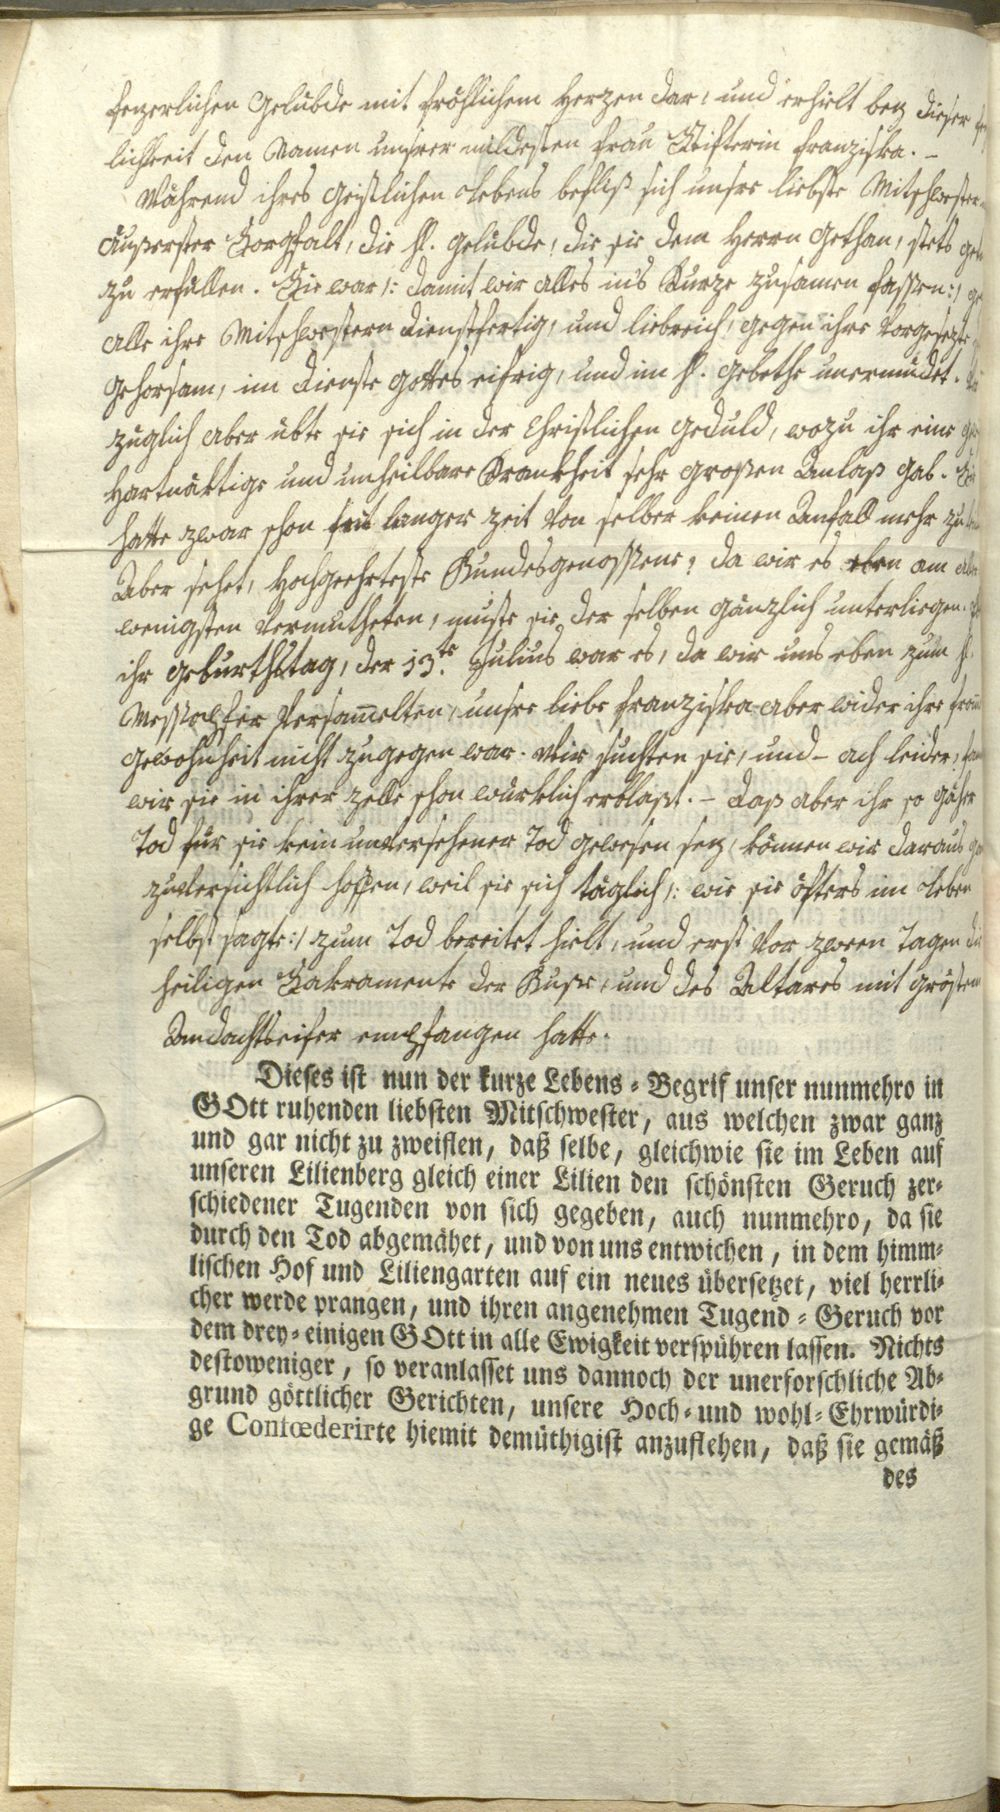 feyerlichen Gelübde mit fröhlichem Herzen dar, und erhielt bey dieser
lichkeit den Namen unsrer mildesten Frau Stifterin Franziska. –
Während ihres Geistlichen Lebens befliß sich unsre liebste Mitschwester
äußerster Sorgfalt, die hl. Gelübde, die sie dem Herrn gethan, stets
zu erfüllen. Sie war /: damit wir alles ins Kurze zusamen fassen :/
alle ihre Mitschwestern dienstfertig, und liebreich, gegen ihre Vorgesezte
gehorsam, im Dienste Gottes eifrig, und im hl. Gebethe unermüdet.
züglich aber übte sie sich in der Christlichen Geduld, wozu ihr eine
hartnäktige und unheilbare Krankheit sehr großen Anlaß gab. Sie
hatte zwar schon seit langer Zeit von selber keinen Anfall mehr zu
Aber sehet, Hochgeehrteste Bundesgenossene, da wir es eben am
wenigsten vermutheten, mußte sie der selben gänzlich unterliegen.
ihr Geburthstag, der 13te Julius war es, da wir uns eben zum hl.
Messopfer versam̄elten, unsre liebe Franziska aber wider ihre
Gewohnheit nicht zugegen war. Wir suchten sie, und – ach leider,
wir sie in ihrer Zelle schon würklich erblaßt. – Daß aber ihr so gäher
Tod für sie kein unversehener Tod gewesen sey, können wir daraus
zuversichtlich hoffen, weil sie sich täglich /: wie sie öfters im Leben
selbst sagte :/ zum Tod bereitet hielt, und erst vor zween Tagen die
heiligen Sakramente der Buße, und des Altares mit größtem
Andachtseifer empfangen hatte.
Dieses ist nun der kurze Lebens-Begrif unser nunmehro in
GOtt ruhenden liebsten Mitschwester, aus welchen zwar ganz
und gar nicht zu zweiflen, daß selbe, gleichwie sie im Leben auf
unseren Lilienberg gleich einer Lilien den schönsten Geruch zer-
schiedener Tugenden von sich gegeben, auch nunmehro, da sie
durch den Tod abgemähet, und von uns entwichen, in dem himm-
lischen Hof und Liliengarten auf ein neues übersetzet, viel herrli-
cher werde prangen, und ihren angenehmen Tugend-Geruch vor
dem drey-einigen GOtt in alle Ewigkeit verspühren lassen. Nichts
destoweniger, so veranlasset uns dannoch der unerforschliche Ab-
grund göttlicher Gerichten, unsere Hoch-und wohl-Ehrwürdi-
ge Confœderirte hiemit demüthigist anzuflehen, daß sie gemäß
des